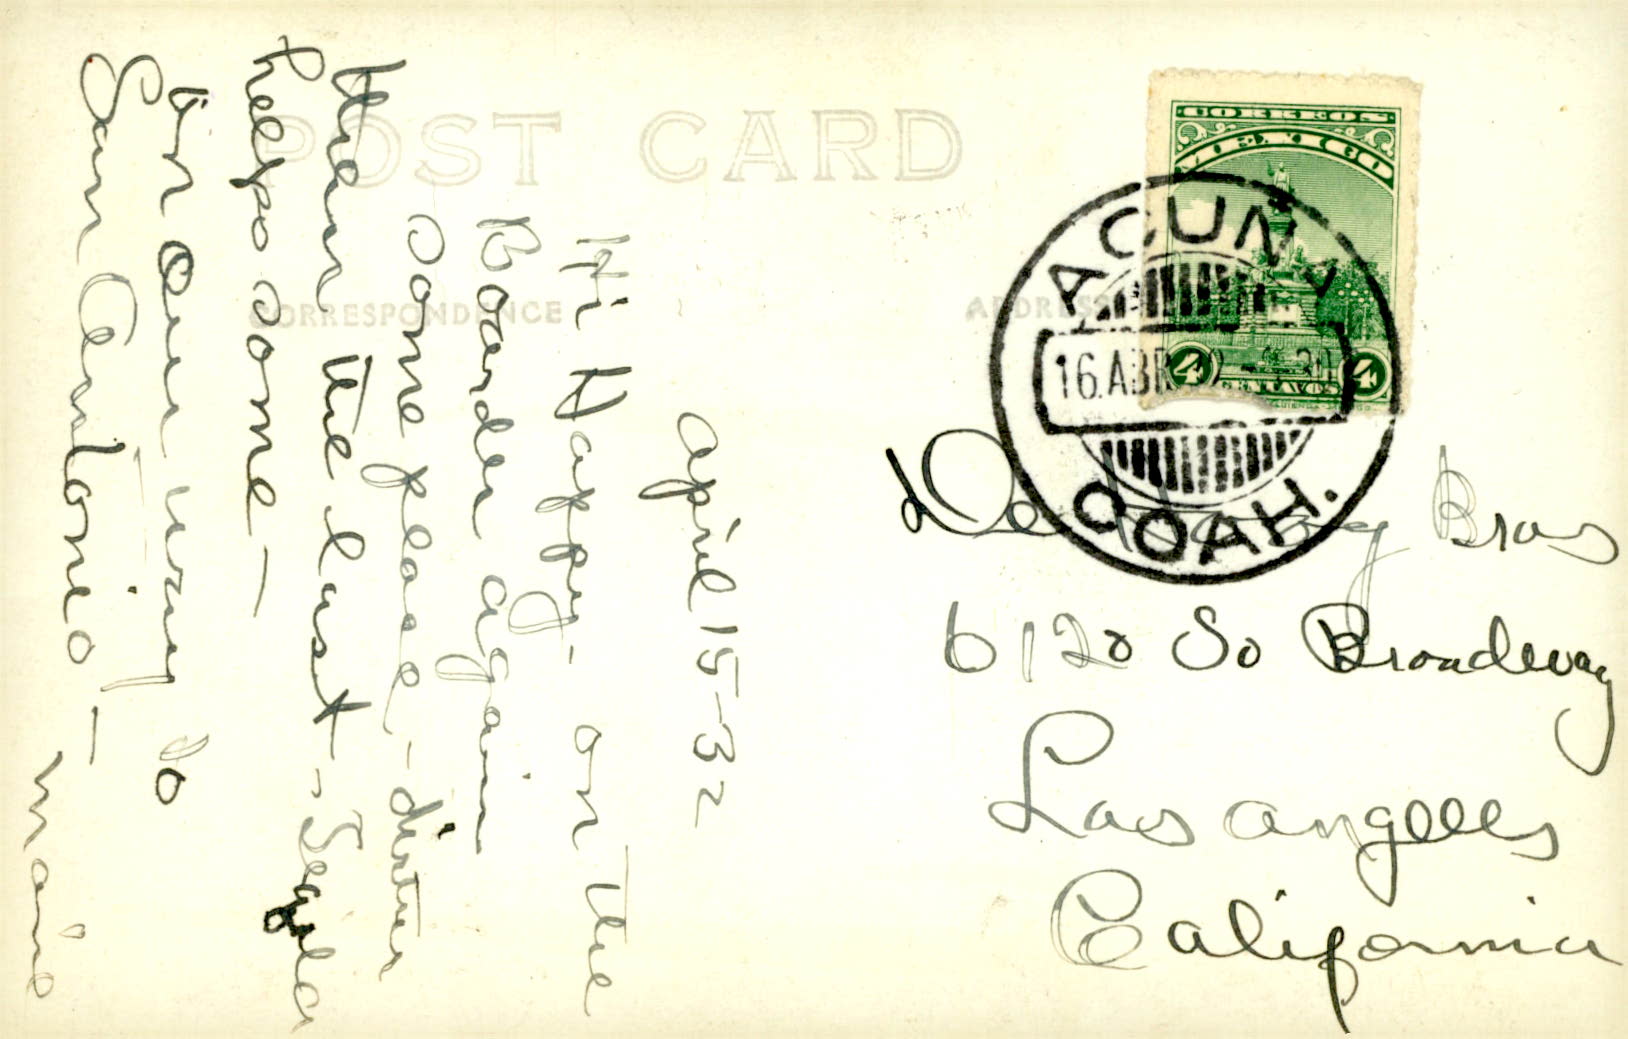 POST CARD
CORRESPONDENCE
ADDRESS
CORREOS
MEXICO
4 CENTAVOS 4
ACUÑA
16.ABR.32
COAH.
April 15-32
Hi Happy - on the
Boarder again
Some place - dirtier
than the last - Segola
helps some -
on our way to
San Antonio -
Maine
Bros
6120 So Broadway
Los Angeles
California